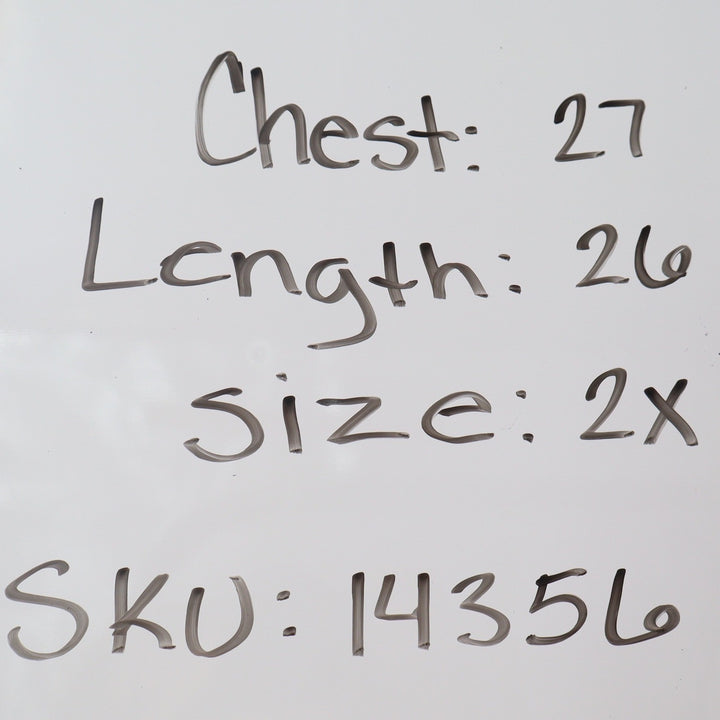 Chest: 27
Length: 26
Size: 2X
SKU: 14356